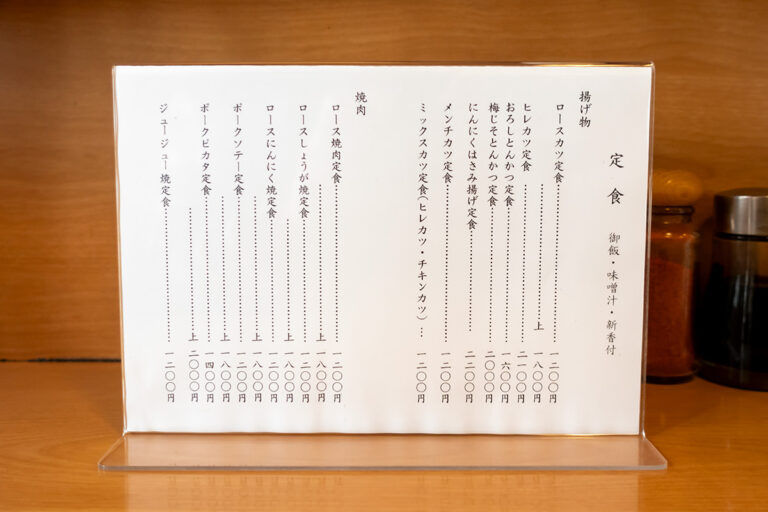 定食
御飯・味噌汁・新香付
揚げ物
ロースカツ定食 一二〇〇円
上 一八〇〇円
ヒレカツ定食 二一〇〇円
おろしとんかつ定食 一六〇〇円
梅じそとんかつ定食 二〇〇〇円
にんにくはさみ揚げ定食 一二〇〇円
メンチカツ定食 一二〇〇円
ミックスカツ定食(ヒレカツ・チキンカツ) 一二〇〇円
焼肉
ロース焼肉定食 一二〇〇円
上 一八〇〇円
ロースしょうが焼定食 一二〇〇円
上 一八〇〇円
ロースにんにく焼定食 一二〇〇円
上 一八〇〇円
ポークソテー定食 一二〇〇円
上 一八〇〇円
ポークピカタ定食 一四〇〇円
上 二〇〇〇円
ジュージュー焼定食 一二〇〇円